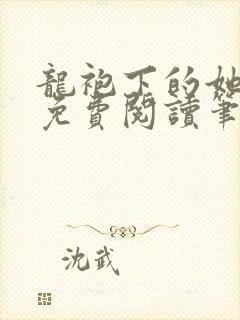 龍袍下的她
免費閱讀筆
沈武